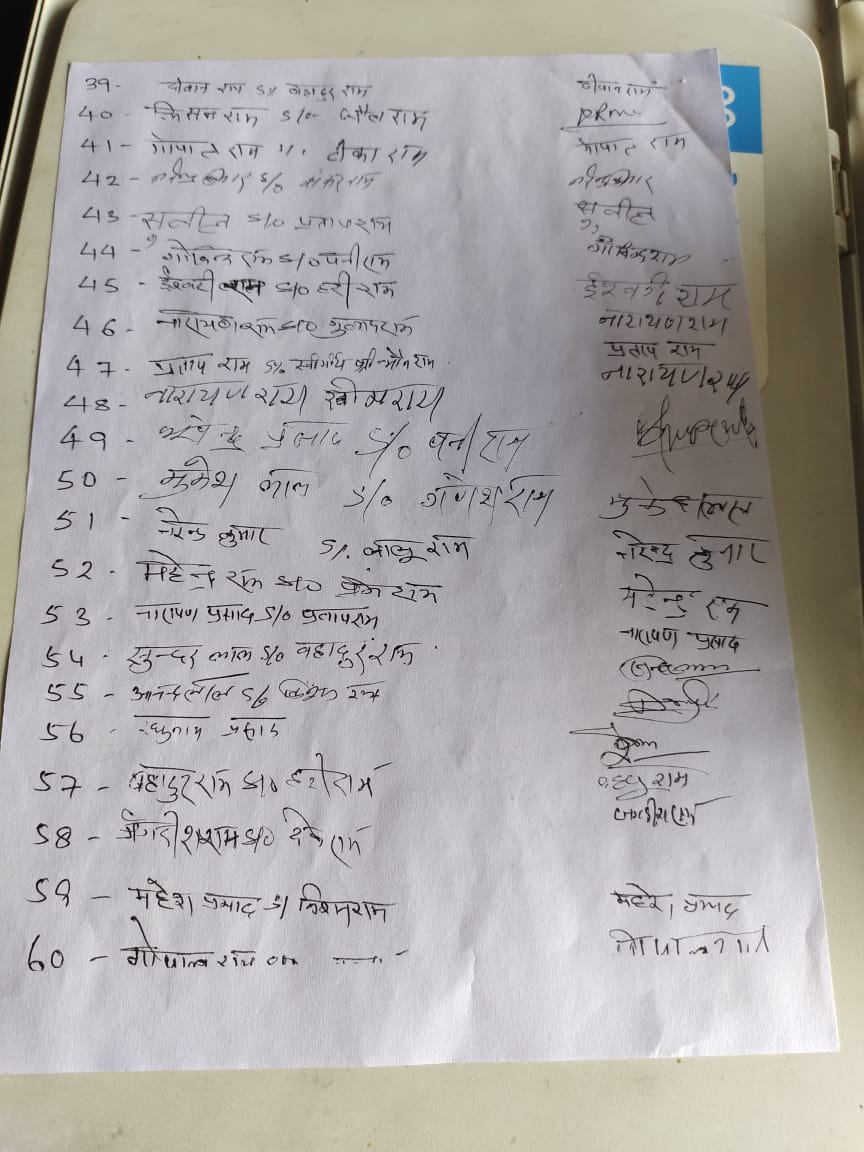 39- दीवान राम S/o बहादुर राम दीवान राम
40- किसन राम S/o राम
41- गोपाल राम S/o टीका राम गोपाल राम
42- नरेन्द्र कुमार S/o राम नरेन्द्र कुमार
43- सुनील S/o प्रतापराम सुनील
44- गोविन्द राम S/o पनीराम गोविन्द राम
45- ईश्वरी राम S/o हरी राम ईश्वरी राम
46- नारायण राम S/o गुलाबराम नारायण राम
47- प्रताप राम S/o स्वर्गीय श्री राम प्रताप राम
48- नारायण राम खीमराम नारायण राम
49- प्रसाद S/o पनी राम
50- मुकेश लाल S/o गणेश राम मुकेश लाल
51- नरेन्द्र कुमार S/o बालू राम नरेन्द्र कुमार
52- महेन्द्र राम S/o प्रेम राम महेन्द्र राम
53- नारायण प्रसाद S/o प्रतापराम नारायण प्रसाद
54- सुन्दर लाल S/o बहादुर राम
55- आनन्द लाल S/o किशन राम
56- रघुनाथ प्रसाद
57- बहादुर राम S/o हरी राम राम
58- जगदीश राम S/o राम जगदीश राम
59- महेश प्रसाद S/o किशन राम महेश प्रसाद
60- गोपाल राम गोपाल राम